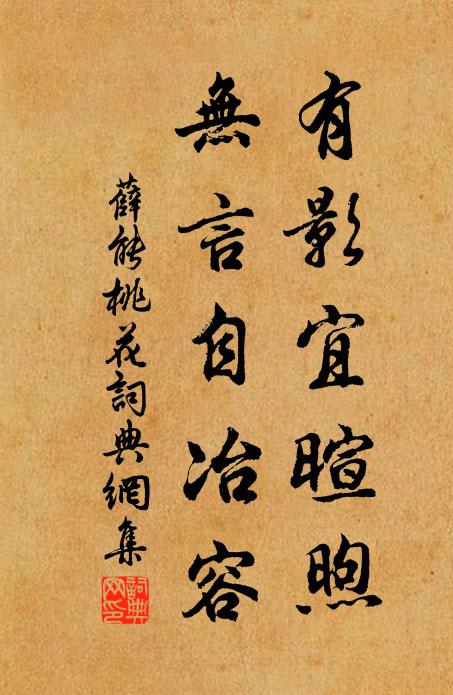 有影宜暄煦
無言自冶容
薛能桃花詞典網集
詞典網印